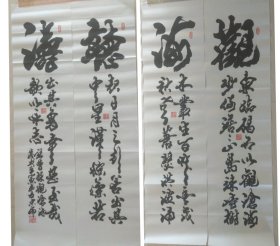 觀
東臨碣石以觀滄海
水何澹澹山島竦峙樹
海
木叢生百草豐茂
秋風蕭瑟洪波涌
聽
起日月之行若出其
中星漢燦爛若
濤
出其裏幸甚至哉
歌以詠志